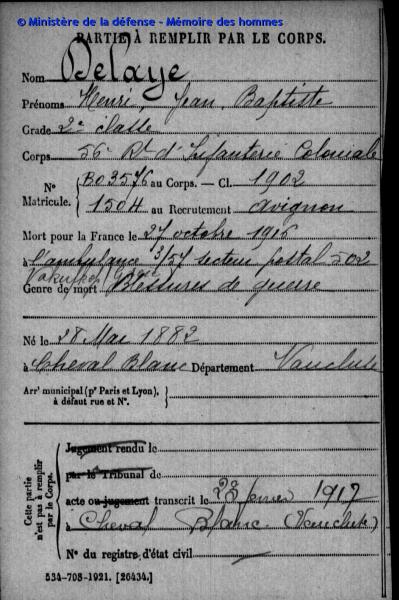 © Ministère de la défense - Mémoire des hommes
PARTIE À REMPLIR PAR LE CORPS.
Nom Delaye
Prénoms Henri, Jean Baptiste
Grade 2e classe
Corps 56 Rt d'Infanterie Coloniale
N° Matricule. B03576 au Corps. — Cl. 1902
1504 au Recrutement Avignon
Mort pour la France le 27 octobre 1916
à l'ambulance 3/57 secteur postal 502
Genre de mort Blessures de guerre
Né le 28 Mai 1882
à Cheval Blanc Département Vaucluse
Arrt municipal (pr Paris et Lyon), à défaut rue et N°.
Cette partie n'est pas à remplir par le Corps.
Jugement rendu le
par le Tribunal de
acte ou jugement transcrit le 23 février 1917
à Cheval Blanc (Vaucluse)
N° du registre d'état civil
534-708-1921. [26434.]